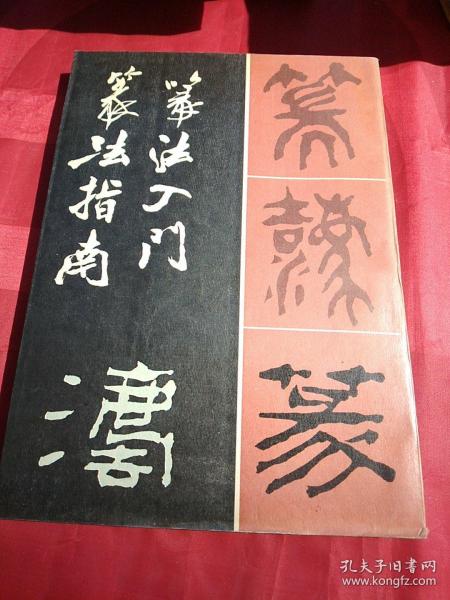 篆法入門
篆法指南
篆
灋
孔夫子旧书网
www.kongfz.com